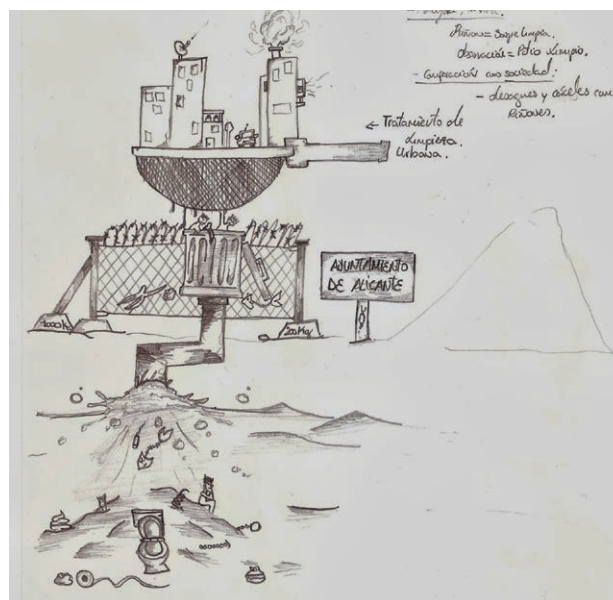 Riñones = Sangre limpia.
= Patio limpio.
- Comparación con sociedad:
- desagües y con
Riñones.
← Tratamiento de
Limpieza
Urbana.
AYUNTAMIENTO
DE ALICANTE
1000 K
200 Kg